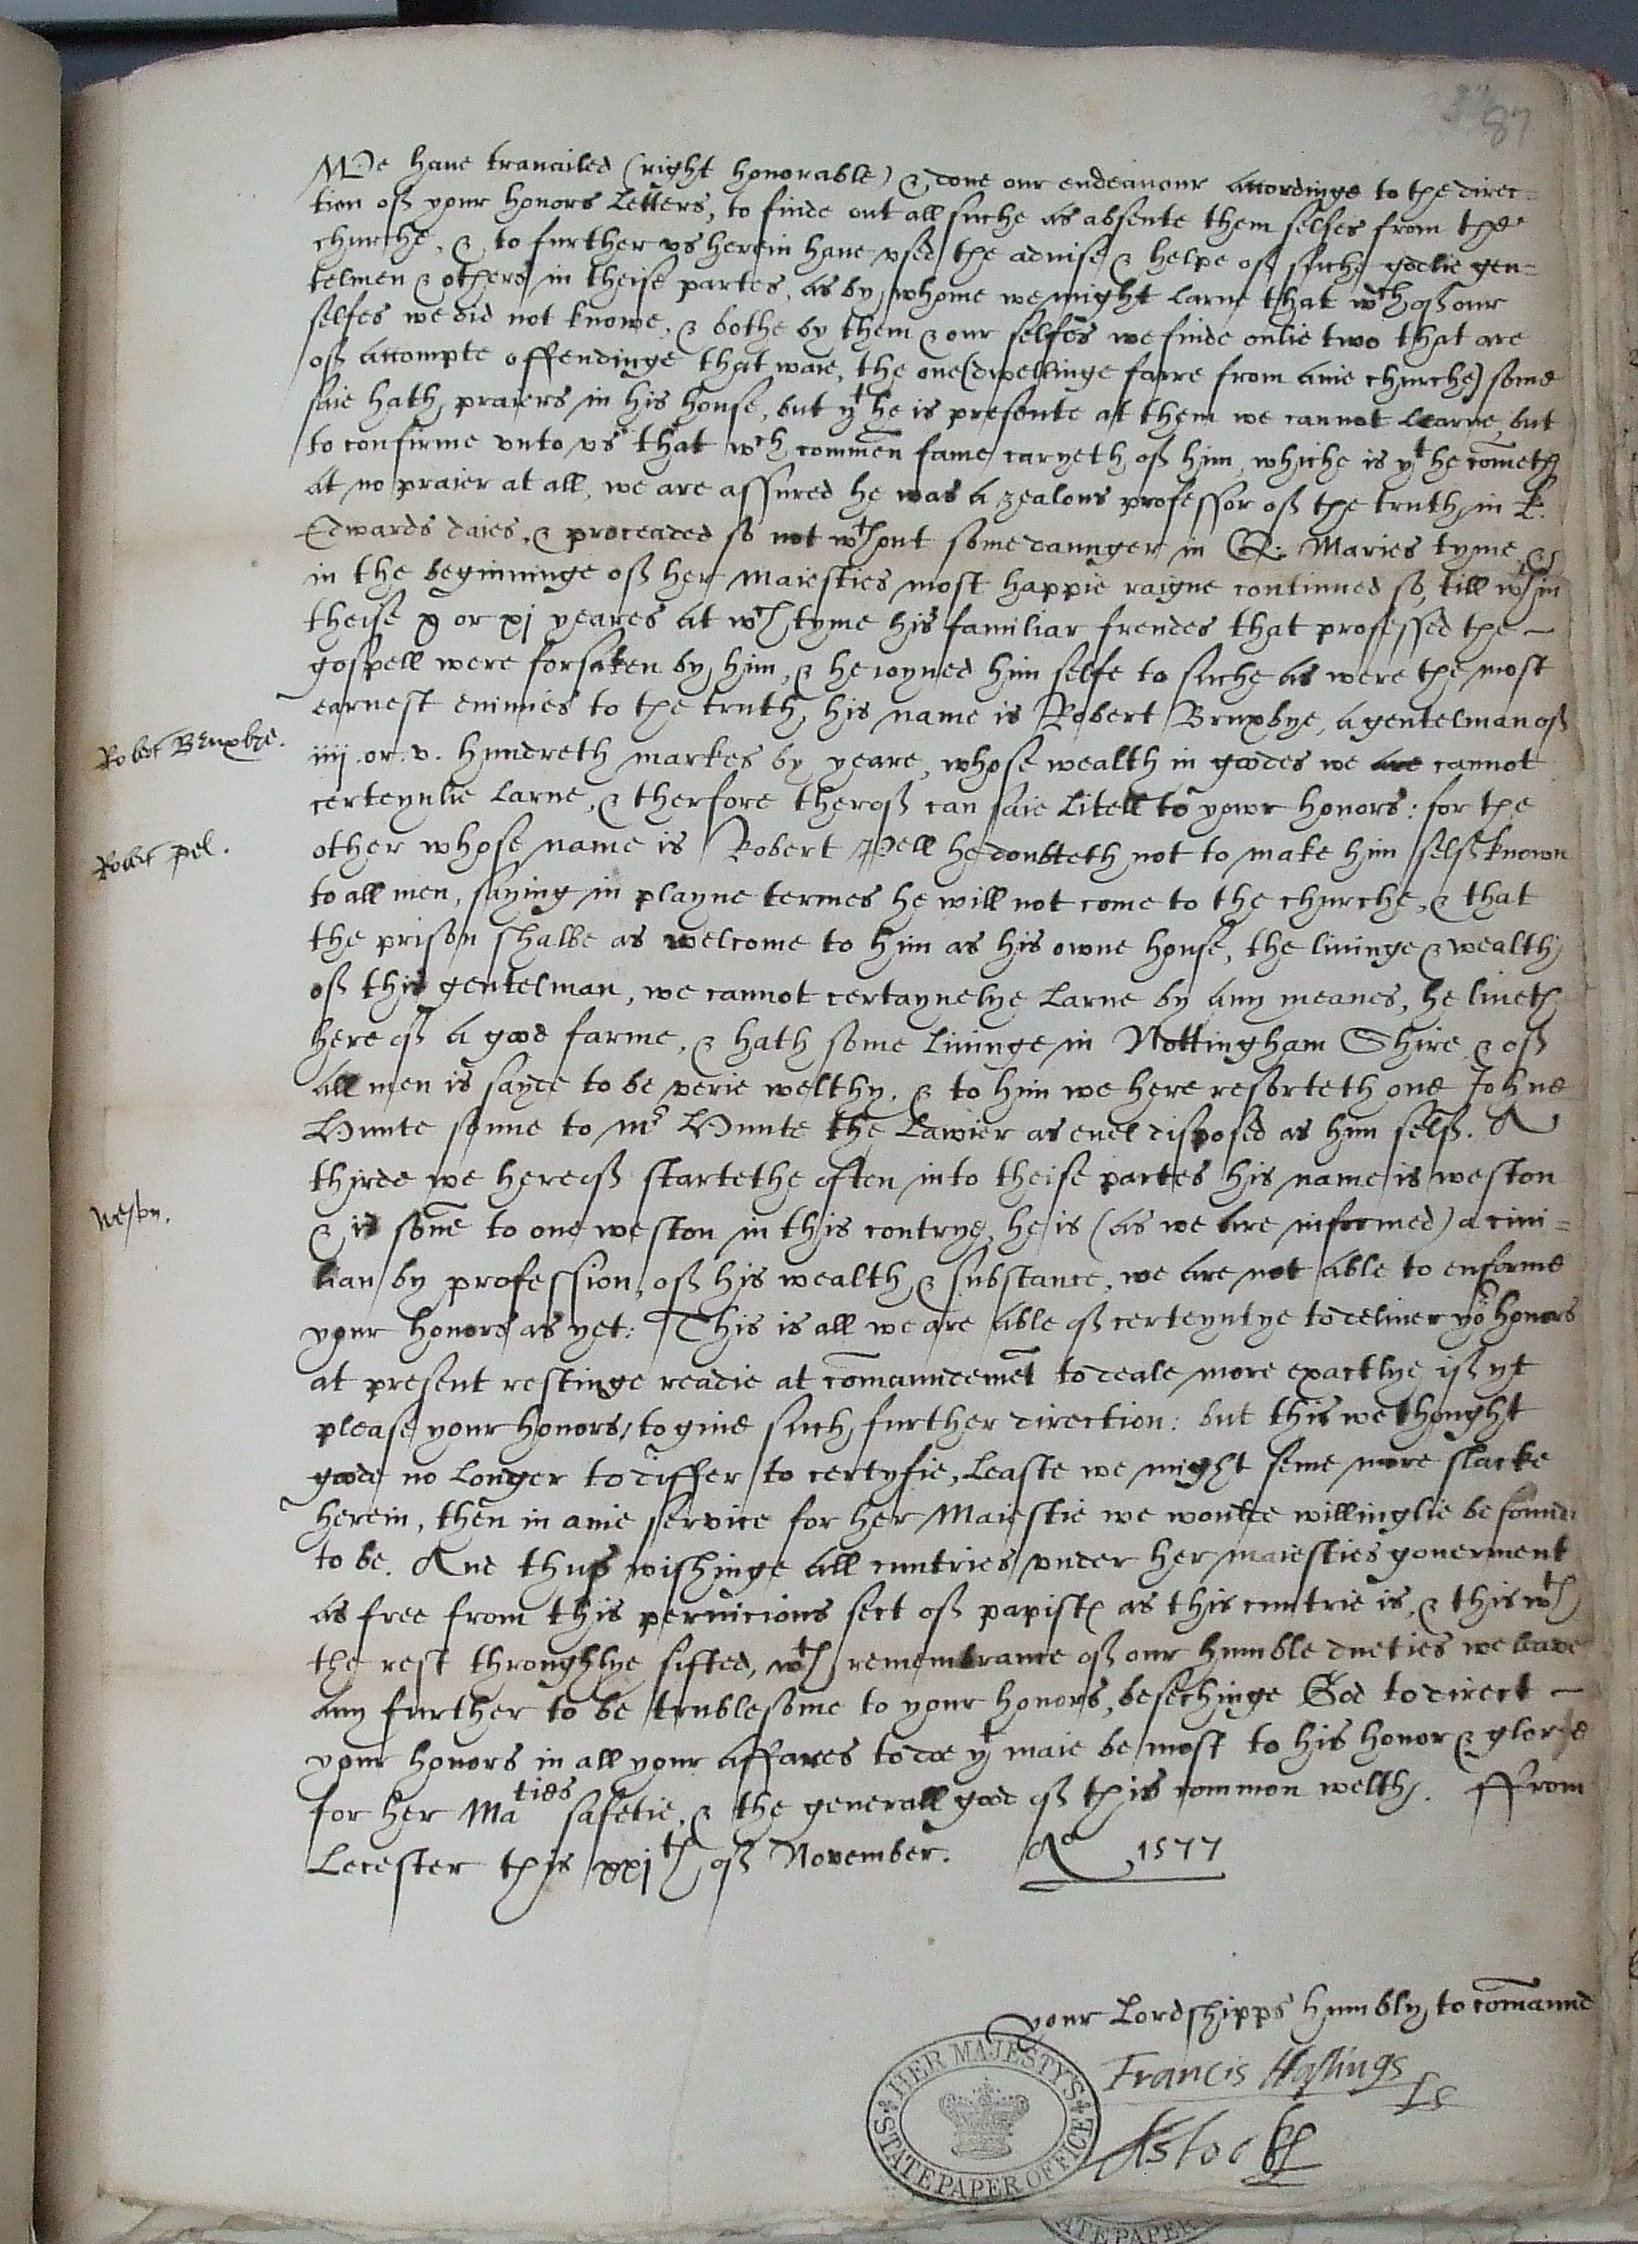 87
We haue trauailed (right honorable) & done our endeauour accordinge to the direc=
tion of your honors Letters, to finde out all suche as absente them selfes from the
churche, & to further vs herein haue vsed the aduise & helpe of suche godlie gen=
telmen & others in theise partes, as by whome we might larne that wch of our
selfes we did not knowe, & bothe by them & our selfes we finde onlie two that are
of accompte offendinge that waie, the one (dwellinge farre from anie churche) some
saie hath praiers in his house, but yt he is presente at them we cannot learne, but
to confirme vnto vs that wch common fame caryeth of him, whiche is yt he cometh
at no praier at all, we are assured he was a zealous professor of the truth in K.
Edwards daies, & proceaded so not wthout some daunger in Q. Maries tyme &
in the beginninge of her maiesties most happie raigne continued so, till wthin
theise x or xj yeares at wch tyme his familiar frendes that professed the
gospell were forsaken by him, & he ioyned him selfe to suche as were the most
earnest enimies to the truth, his name is Robert Bruxbye, a gentelman of
Robert Bruxbye.
iiij. or. v. hundreth markes by yeare, whose wealth in goodes we are cannot
certeynlie larne, & therfore therof can saie litell to yowr honors: for the
Robert pel.
other whose name is Robert Pell he doubteth not to make him self known
to all men, saying in playne termes he will not come to the churche, & that
the prison shalbe as welcome to him as his owne house, the liuinge & wealth
of this gentelman, we cannot certaynelye larne by any meanes, he liueth
here of a good farme, & hath some liuinge in Nottingham Shire & of
all men is sayde to be verie welthy, & to him we here resorteth one Johne
Hunte sonne to mr Hunte the Lawier as euel disposed as him self. A
thirde we here of startethe often into theise partes his name is weston
Weston.
& is sonne to one weston in this contrye, he is (as we are informed) a ciui=
lian by profession, of his wealth & substance, we are not able to enforme
your honors as yet: This is all we are able of certeyntye to deliuer yor honors
at present restinge readie at comaundemet to deale more exactlye if yt
please your honors to giue such further direction: but this we thought
goode no longer to differ to certyfie, Leaste we might seme more slacke
herein, then in anie service for her Maiestie we woulde willinglie be founde
to be. And thus wishinge all cuntries vnder her maiesties gouerment
as free from this pernicious sect of papistes as this cuntrie is, & this wth
the rest throughlye sifted, wth remembrance of our humble dueties we leave
any further to be trublesome to your honors, besechinge God to direct
your honors in all your affares to doe yt maie be most to his honor & glorye
for her Maties safetie, & the generall good of this common welth. From
Lecester this xxjth of November. Ao 1577
your Lordshipps humbly to comaund
Francis Hastings
HER MAJESTY'S STATE PAPER OFFICE